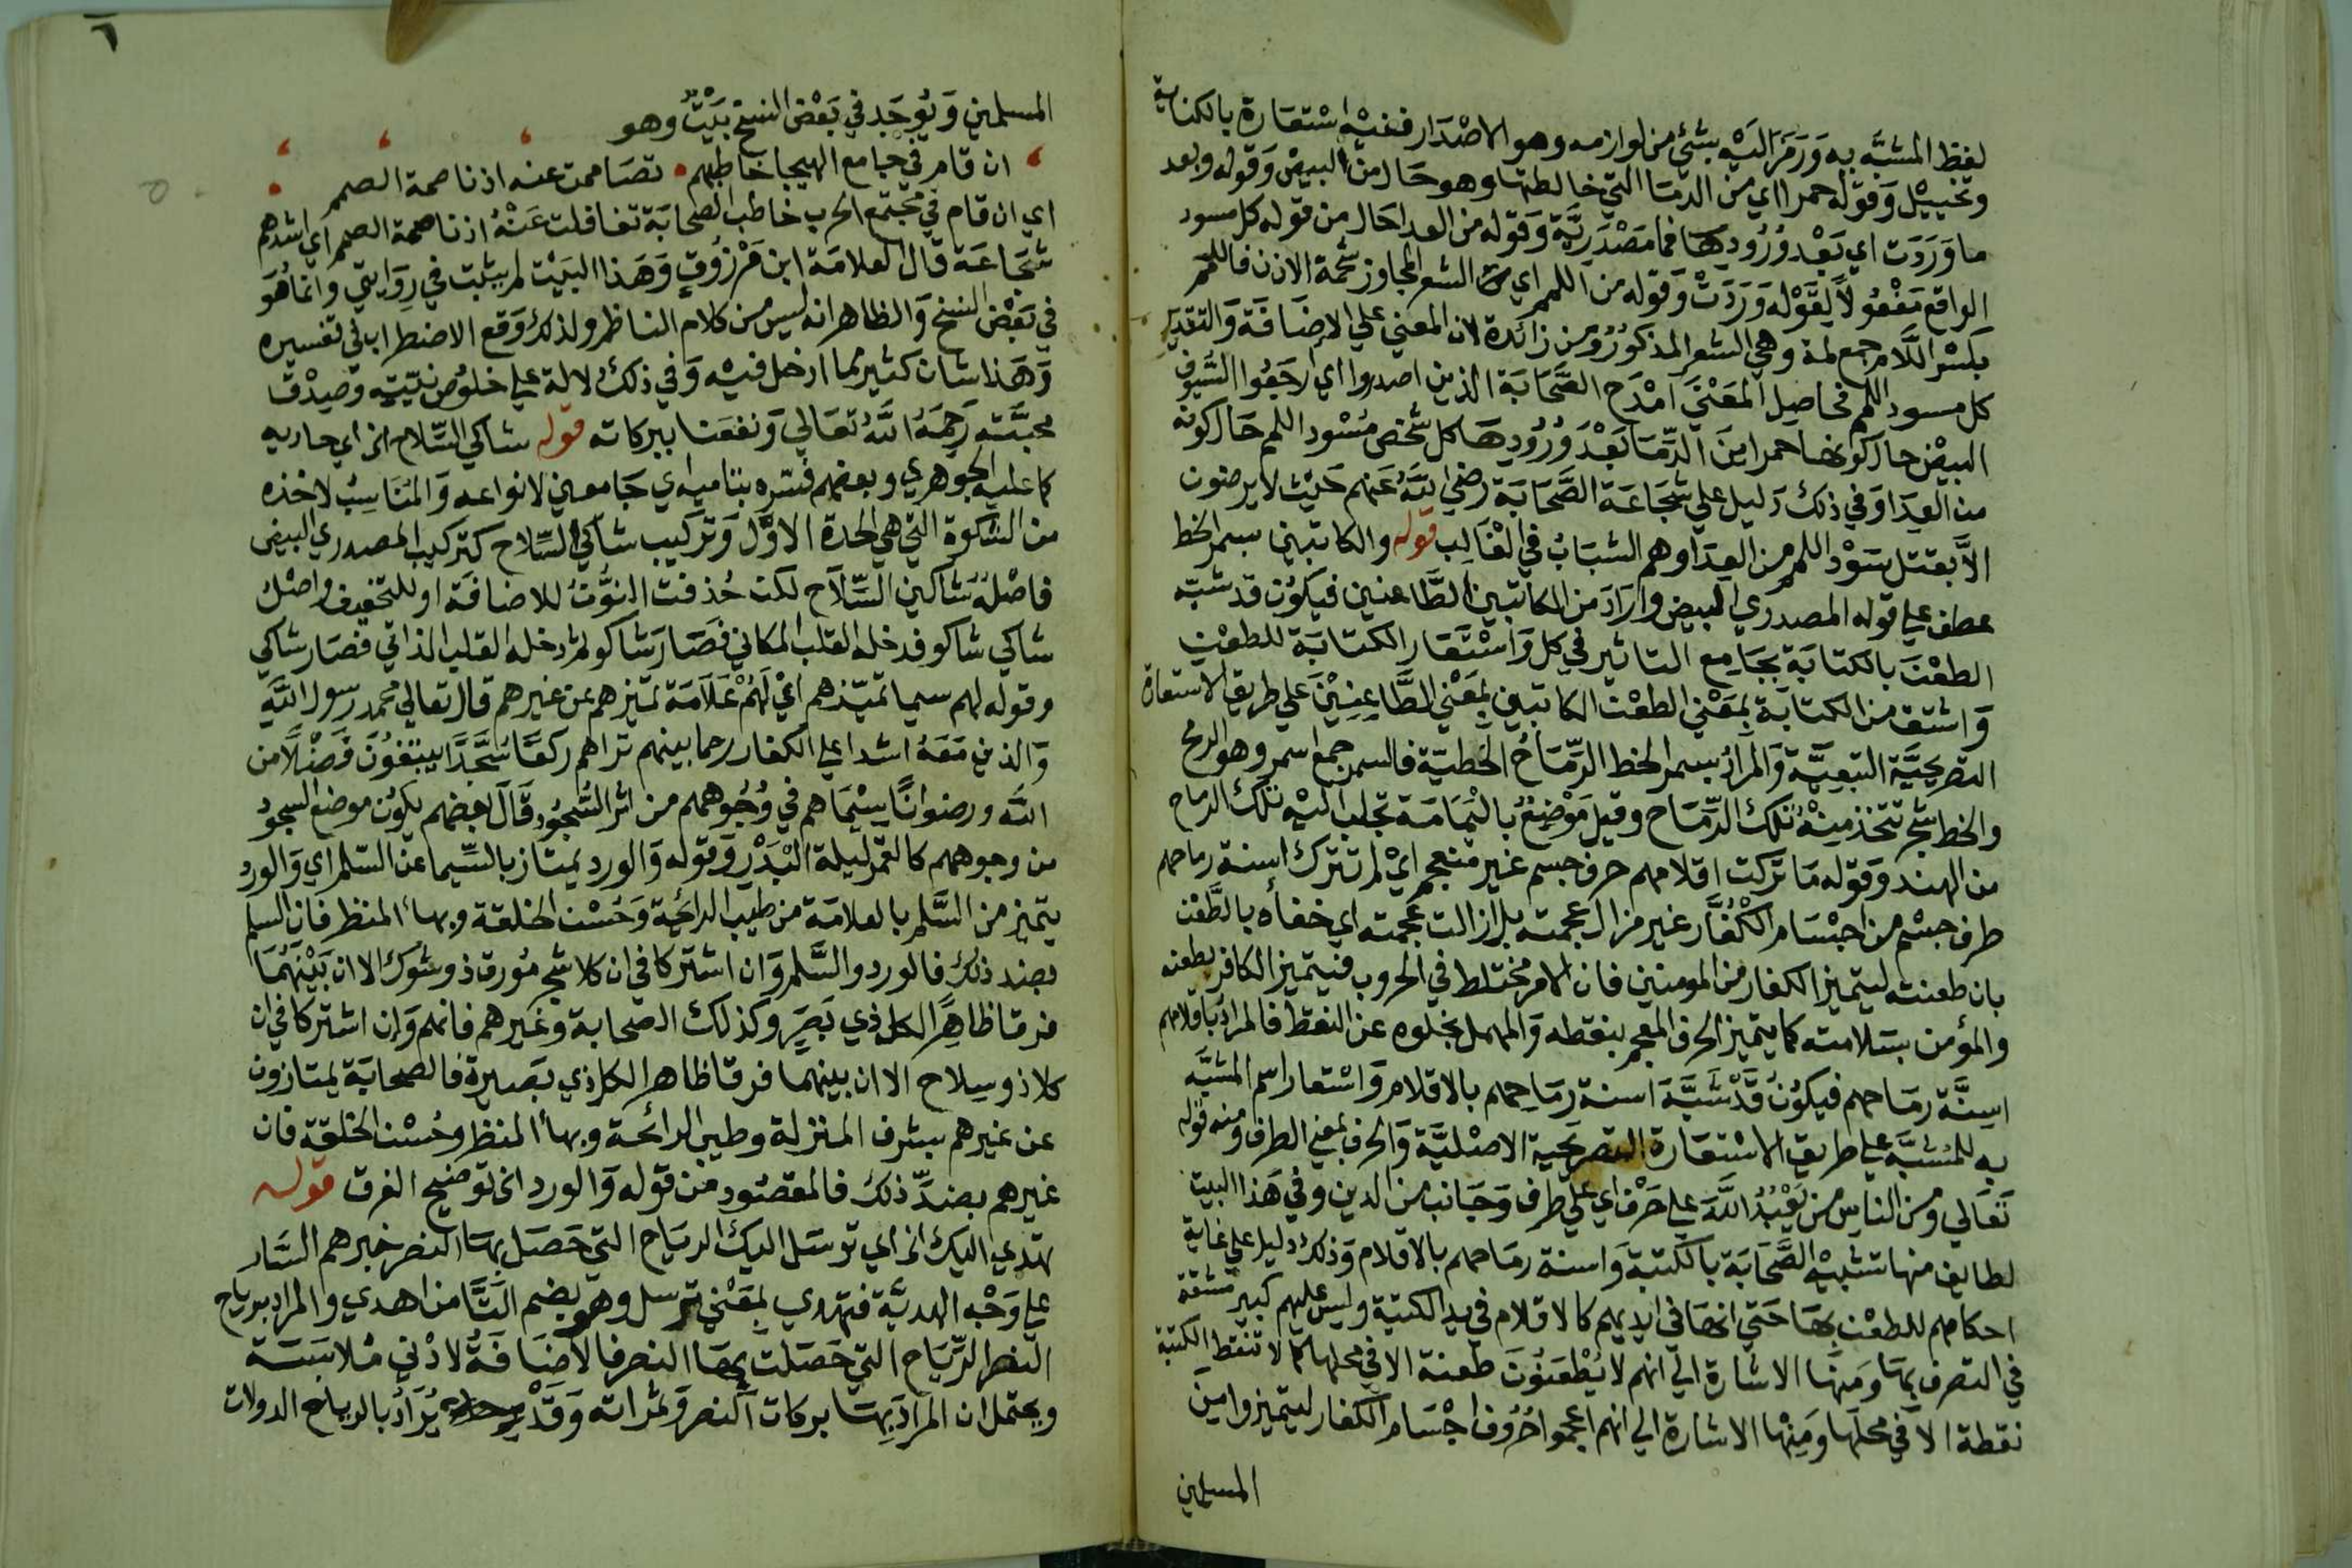 لفظ المشبه به وَرَمَزَ اليْه بشيْ من لوازمه وهو الاصْدَار ففيْه اسْتعَارة بالكناية
وتخييْل وَقوْله حمرا اي من الدمَا التي خالطتها وهو حَال من البيضْ وَقوله وبعد
ما وَرَدَت اي بَعْد وُرُودِهَا فما مَصْدَريَّة وَقوله من العدا حَال من قوله كل مسود
الواقع مَفْعُولاً لِقَوْله وَرَدَتْ وَقوله من اللمم اي من الشعر المجاوز شحمة الاذن فاللمم
بكسْر اللَّام جمع لمة وهي الشعر المذكوُر وَمن زائدة لان المعني علي الاضَافَة وَالتقدير
كل مسود اللمم فحَاصِل المَعْنَي امْدَح الصَّحَابَة الذين اصدروا اي ارجَعُوا السُّيُوف
البيضْ حالَ كونها حمرا مِنَ الدِّمَا بَعْدَ وُرُودِهَا كل شَخصْ مُسْود اللمم حَال كونه
من العِدَا وَفي ذلك دَليل علي شجَاعَة الصَّحَابَة رَضيَ اللَّه عَنهم حَيْث لا يرضون
الاَّ بقتل سَوْد اللمم من العِدَا وهم الشبَابُ في الغَالِب قوله والكاتبين بسمر الخط
عطف علي قوله المصدري البيض وَارَادَ من الكاتبين الطَّاعنين فيكوُن قد شبه
الطعْنَ بالكتابَة بجَامِع التاثير في كل وَاسْتَعَار الكتابَة للطعْن
وَاشتق من الكتابَة بِمَعْني الطعْن الكاتبين بِمَعْني الطَّاعِنِيْنَ علي طريق الاستعارة
التصريحيَّة التبعِيَّة وَالمرَادُ بسمر الخط الرِّمَاحُ الخَطيّة فالسمر جمع اسمر وهو الرمح
والخط شجر تتخذ مِنْهُ تلك الرِّمَاح وقيل مَوْضعٌ باليَمَامَة تجلب اليْه تلك الرماح
من الهند وَقوله مَا تركت اقلامهم حرف جسم غير منعجم ايْ لم تترك اسنة رماحهم
طرف جسْم من اجسَام الكُفَّار غير مزال عجمته بل ازالت عجمته اي خفأه بالطَّعْن
بان طعنته ليتميز الكفار من المومنين فان الامر مختلط في الحروب فيتميز الكافر بطعنه
والمؤمن بسَلامته كما يتميز الحرف المعجم بنقطه وَالمهمل بخلوه عن النقط فالمرادُ باقلامهم
اسِنَّة رمَاحهم فيكوُنُ قَدْ شَبَّهَ اسنة رمَاحهم بالاقلام وَاسْتعار اسم المشبَّه
به للمُشبَّه علي طريق الاسْتعَارة التصريحية الاصْليَّة وَالحرف بمعني الطرف ومنه قوله
تَعَالي ومن الناس من يَعْبُدُ اللَّهَ علي حَرْف اي علي طرف وَجَانب من الدين وفي هَذا البيت
لطايف منها تشبيْه الصَّحَابَة بالكتبَة وَاسنة رمَاحهم بالاقلام وَذلك دليل علي غاية
احكامهم للطعْن بهَا حَتي انهَا في ايديهم كالاقلام في يد الكتبة وليس عليهم كبير مشقة
في التصرف بهَا وَمنهَا الاشارة الي انهم لا يُطْعَنُونَ طعنة الا في محلها كما لا تنقط الكتبة
نقطة الا في محلهَا وَمِنْها الاشارة الي انهم اعجموا حُرُوف اجْسَام الكفار ليتميزوا مِنَ
المسلمين
٦
المسلمين وَيُوجَد في بَعْض النسخ بَيْتٌ وهو
ان قام في جامع الهيجا خاطبهم تصَاممت عنه اذنا صمة الصمم
اي ان قام في مجتمع الحرب خاطب الصحابَة تغافلت عَنْهُ اذنا صمة الصمم اي اشدهم
شجَاعَة قال العلامَة ابن مَرْزُوق وَهَذا البَيْت لم يثبت في رِوَايتي وانمَا هُوَ
في بَعْض النسخ وَالظاهر انه ليس من كلام الناظم ولذلك وَقع الاضطراب في تفسيره
وَهَذا شان كثير مما ادخل فيْه وَفي ذلك دُلالة علي خلوُص نيّته وَصِدْق
محبَّته رَحِمَهُ اللَّهُ تعَالي وَنفعَنا ببركاته قوله شاكي السّلاح الخ اي حاديه
كما عليه الجوهري وبعضهم فسّره بتاميه اي جَامعين لانواعه وَالمُنَاسِبُ لاخذه
من الشوكة التي هي الحدة الاوَّل وَتركيب شاكي السِّلاح كتركيب المصدري البيض
فاصْلهُ شاكين السِّلاَح لكن حُذفت النوُّنُ للاضافَة او للتخفيف واصْلُ
شاكي شاكو فدخله القلب المكاني فصَارَ شاكو ثم دخله القلب الذاتي فصَار شاكي
وقوله لهم سيما تميّزهم ايْ لَهُمْ عَلاَمَة تميزهم عن غيرهم قال تعالي محمد رسول اللَّه
وَالذين مَعَهُ اشدا علي الكفار رحما بينهم تراهم ركعًا سُجَّدًا يبتغُونَ فَضْلاً من
اللَّه ورضوانًا سِيْمَاهم في وُجُوههم من اثر السُّجُود قَالَ بعضهم يكوُن موضع السجود
من وجوههم كالقمر ليلة البَدْر وَقوْله وَالورد يمتاز بالسِّيما عن السّلم اي وَالورد
يتميز من السَّلم بالعلامَة من طيب الرائحَة وَحُسْن الخلقة وبهأ المنظر فان السلم
بضد ذلك فالورد والسَّلم وَان اشتركا في ان كلا شجر مُورق ذو شوك الا ان بَيْنَهُمَا
فرقا ظاهِرًا لكل ذي بَصَرٍ وكذلك الصحابة وغيرهم فانهم وَإن اشتركا في ان
كلا ذو سِلاح الا ان بينهما فرقا ظاهرا لكل ذي بصيرة فالصحابَة يمتازون
عن غيرهم بشرف المنزلة وطيب الرائحة وبهأ المنظر وحُسْن الخلقة فان
غيرهم بضدِّ ذلك فالمقصُود من قوله وَالورد الخ توضيح الفرق قوله
تهدي اليك الخ اي ترسَل اليك الريَاح التي حَصَل بهَا النصر خبرهم السَّار
علي وَجْه الهديَّة فتهدي بِمَعْني ترسل وهو بضم التَّا من اهدي والمراد برياح
النصر الرِّيَاح التي حَصَلت بهَا النصر فالاضَافَة لادْني مُلابَسَة
ويحتمل ان المرادَ بِهَا بركات النصر وَثمراته وَقَدْ يُرَادُ بالرياح الدولات